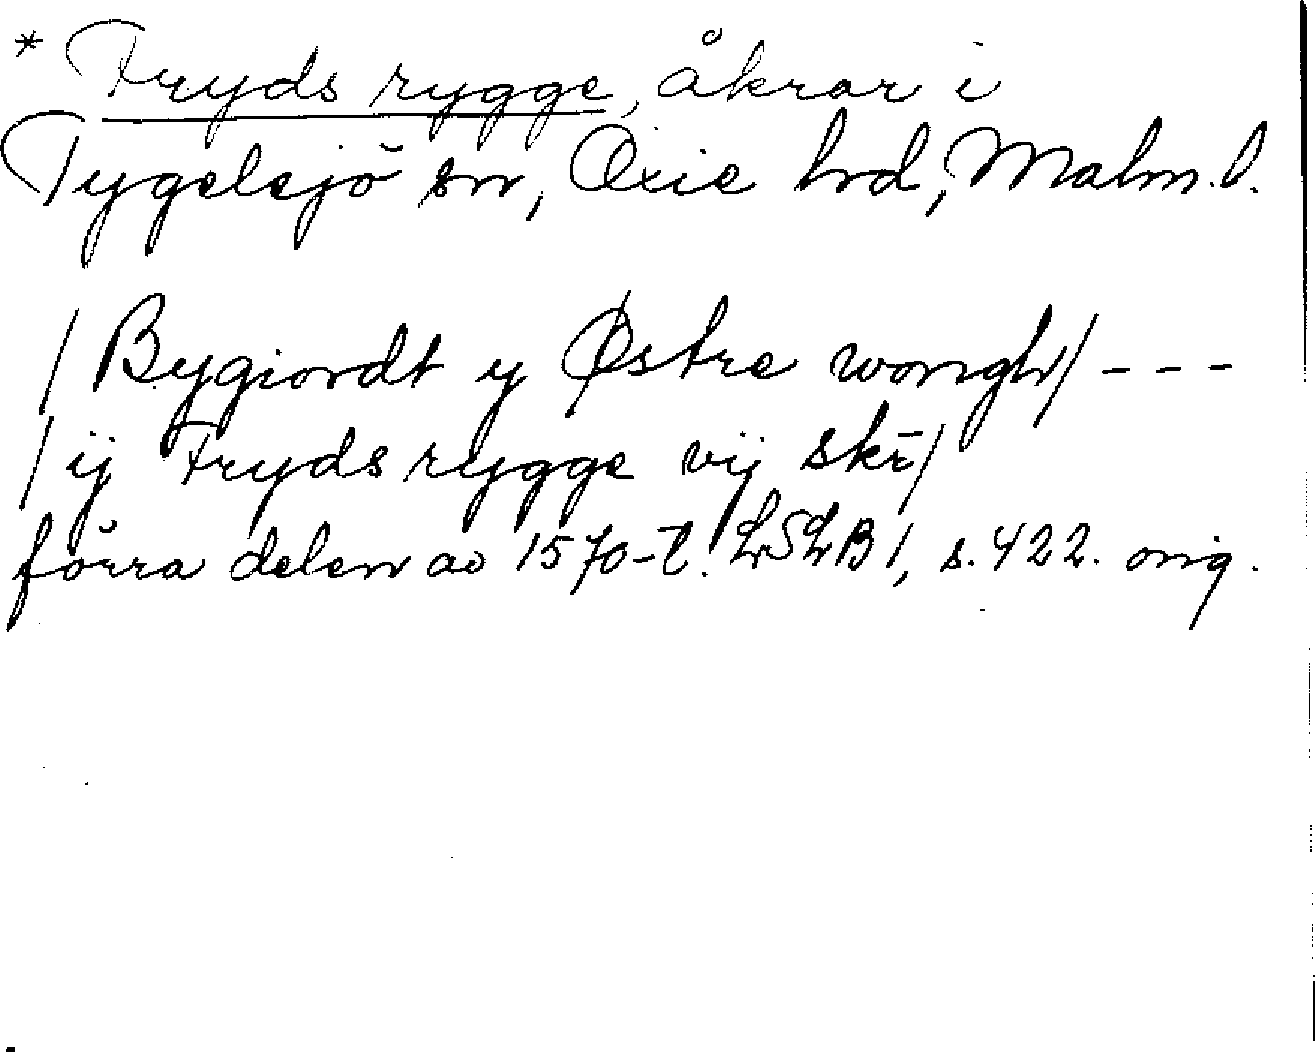 * Fryds rygge, åkrar i
Tygelsjö sn, Oxie hd, Malm. l.
/ Bygiordt y Østre wongh/ ---
/ ij Fryds rygge vij skr̄/
förra delen av 1570-t. LSLB 1, s. 422. orig.